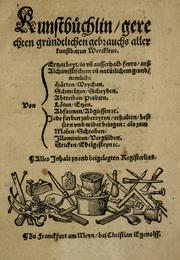 Kunstbüchlin / gere
chten gründtlichen gebrauchs aller
kunstbaren Werckleut.
Ertzarbeyt, in vñ ausserhalb feurs, auß
Alchimistischem vñ natürlichem grund /
nemlich:
Härten / Weychen.
Schmeltzen / Scheyden.
Abtreiben / Probirn.
Von
Löten / Etzen.
Abformen / Abgiessen ꝛc.
Jede farben zubereyten / erhalten / bes
sern vnd wider bringen: als zum
Malen / Schreiben:
Illuminiren / Vergülden.
Sticken / Edelgesteyn ꝛc.
¶ Alles Inhalt zu end beigelegten Registerlins.
¶ Zu Franckfurt am Meyn / bei Christian Egenolff.